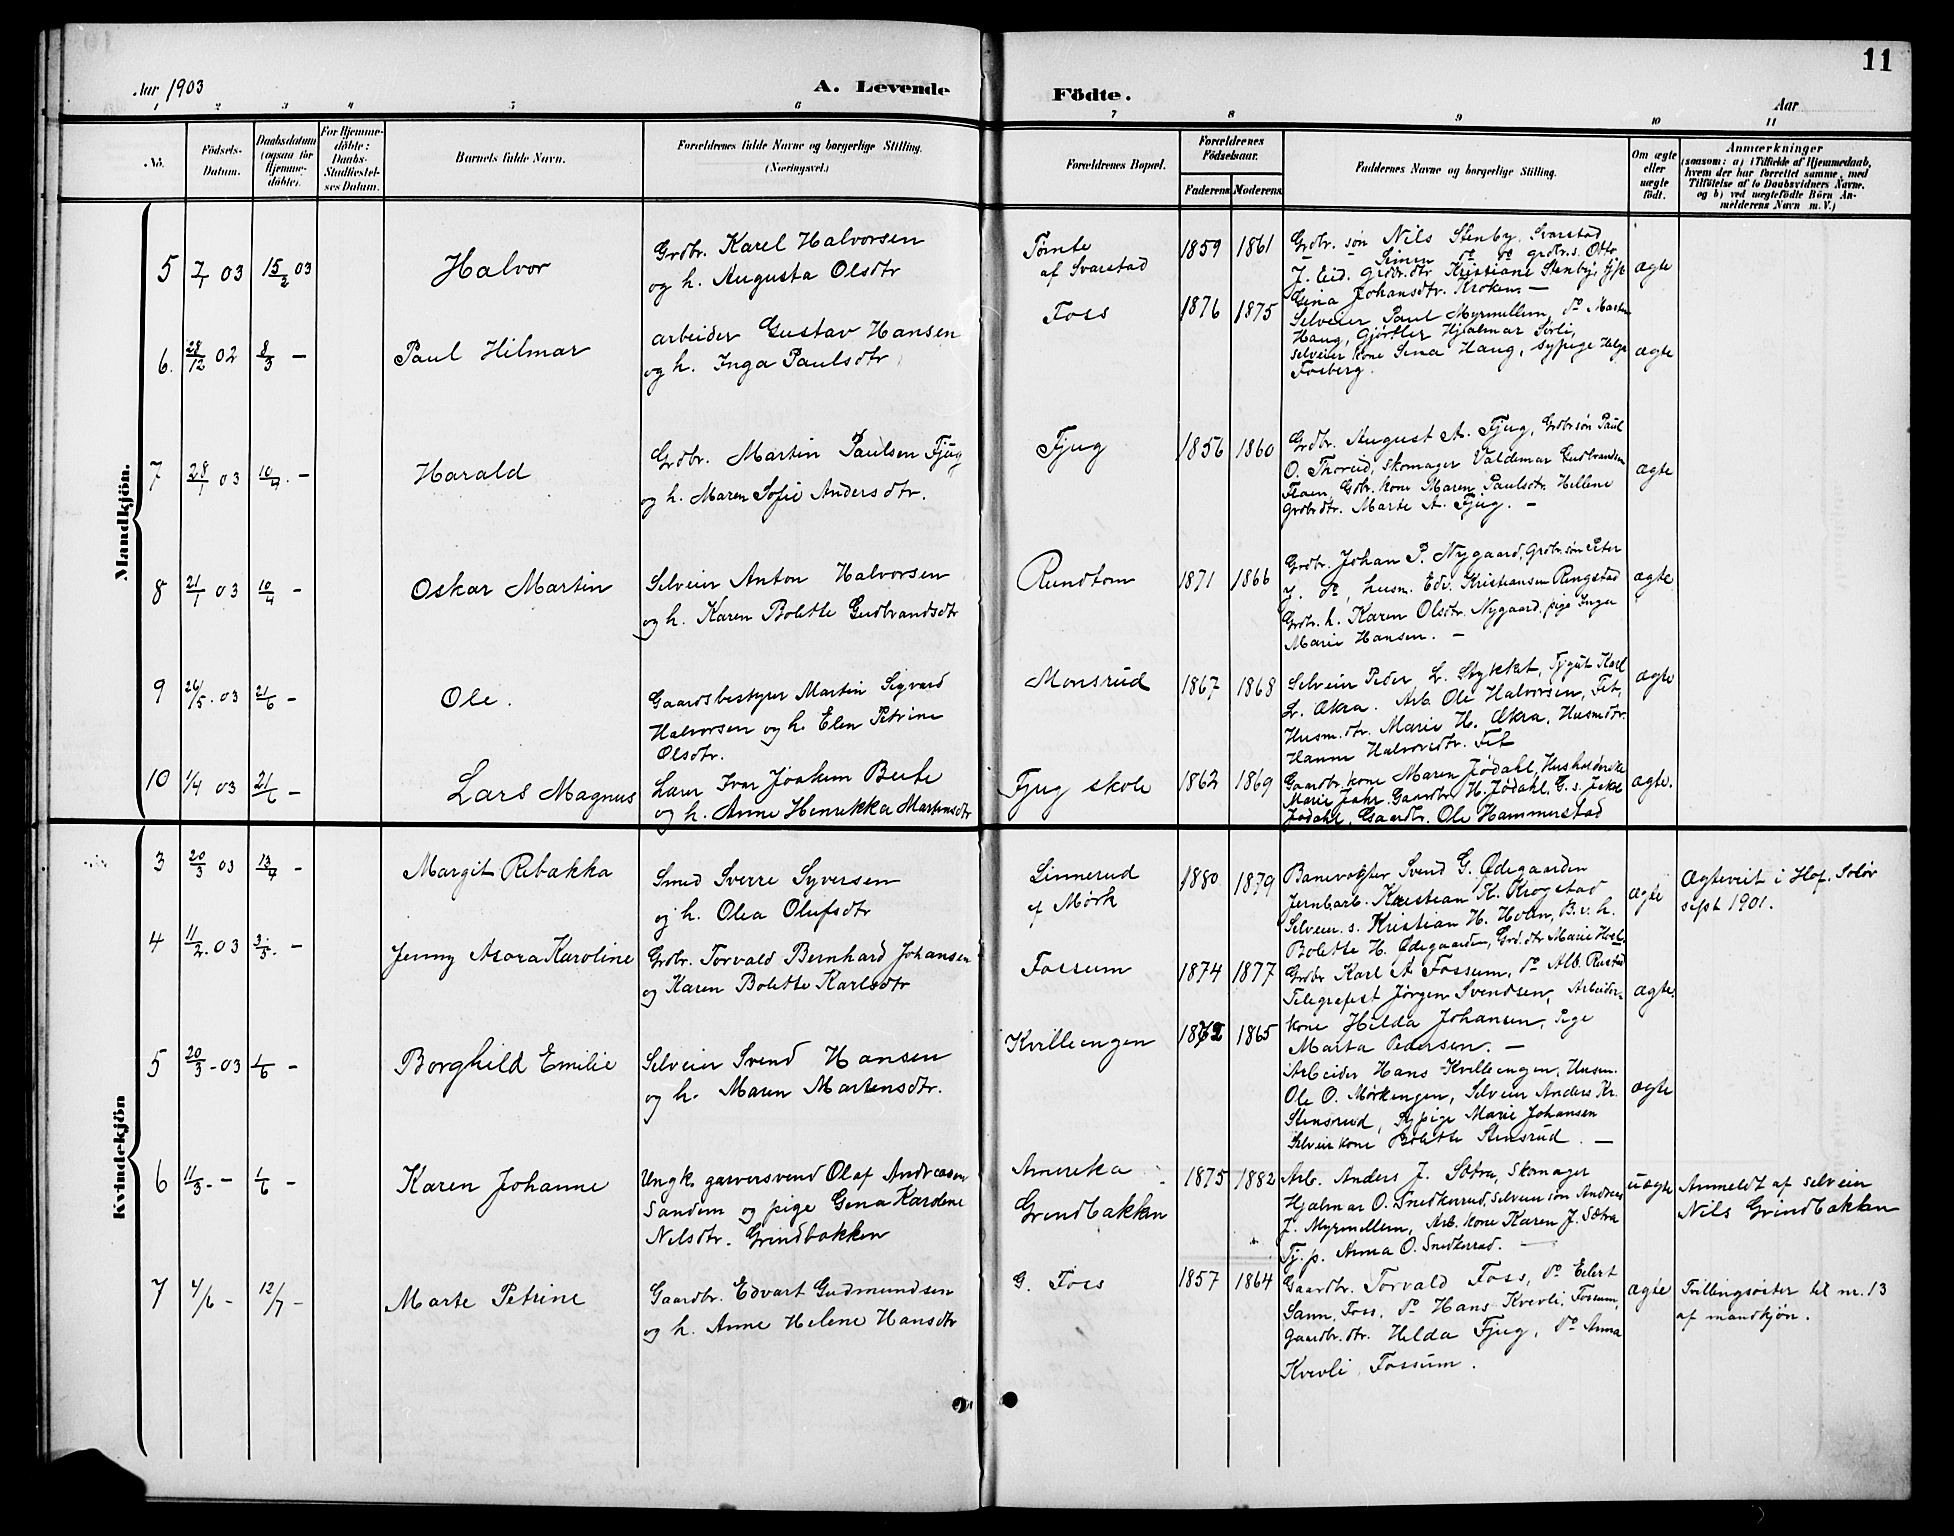 11
Aar 1903
A. Levende Födte.
Aar
1 2 3 4 5 6 7 8 9 10 11
No.
Födsels-
Datum.
Daabsdatum
(ogsaa for
Hjemme-
döbte).
For Hjemme-
döbte:
Daabs-
Stadfæstel-
ses Datum.
Barnets fulde Navn.
Forældrenes fulde Navne og borgerlige Stilling.
(Næringsvei.)
Forældrenes Bopæl.
Forældrenes
Fødselsaar.
Faderens
Moderens
Faddernes Navne og borgerlige Stilling.
Om ægte
eller
uægte
født.
Anmærkninger
(saasom: a) i Tilfælde af Hjemmedaab,
hvem der har forrettet samme, med
Tilföielse af to Daabsvidners Navne.
og b) ved uægtefödte Börn An-
melderens Navn m. V.)
Mandkjön.
5 7/1 03 15/2 03 Halvor
Grdbr. Karel Halvorsen
og h. Augusta Olsdtr
Tømte
af Svarstad
1859 1861
Grdbr. søn Nils Stenby, Svarstad
Simen do do grdbr.s. Otto
J. Eid. Grdbr.dtr Kristiane Stenby,
Gina Johansdtr. Kroken. —
ægte
6. 28/12 02 8/3 — Paul Hilmar
arbeider Gustav Hansen
og h. Inga Paulsdtr
Foss
1876 1875
Selveier Paul Myrmellem, do Martin
Haug, Gjørtler Hjalmar Sørli,
selveier kone Sina Haug, sypige Helga
Fosberg.
ægte
7 28/1 03 10/4 — Harald
Grdbr. Martin Paulsen Fjug
og h. Maren Sofie Andersdtr.
Fjug
1856 1860
Grdbr. August A. Fjug, Grdbrsøn Paul
O. Thoreid, skomager Valdemar Gudbrandsen
Flaen, Gdbr. kone Maren Paulsdtr. Hellene
grdbrdtr. Marte A. Fjug. —
ægte
8 21/1 03 10/4 — Oskar Martin
Selveier Anton Halvorsen
og h. Karen Bolette Gudbrandsdtr
Rundtom
1871 1866
Grdbr. Johan P. Nygaard, Grdbr. søn Peter
J. do, husm. Edv. Kristiansen Ringstad
Grdbr. h. Karen Olsdtr. Nygaard, pige Inga
Marie Hansen. —
ægte
9 26/5. 03 21/6 — Ole.
Gaardsbestyrer Martin Sigvard
Halvorsen og h. Elen Petrine
Olsdtr.
Monsrud
1867 1868
Selveier Peder L. Stykket, Tjgut Karl
L. Økra. Arb. Ole Halvorsen, Fet,
Husm.dtr. Marie H. Økra, Husmdtr.
Hanna Halvorsdtr. Fet
ægte
10 1/4 03 21/6 — Lars Magnus
Lærer Ivar Joakim Beite
og h. Anne Henrikka Martinsdtr
Fjug skole
1862 1869
Gaardbr. kone Maren Jødahl, Husholderske
Marie Jahr. Gaardbr. H. Jødahl, G. s. Jakob
Jødahl, Gaardbr. Ole Hammerstad
ægte.
Kvindekjön
3 20/3 03 13/4 — Margit Rebakka
Smed Sverre Syversen
og h. Olea Olufsdtr
Linnerud
af Mørk
1880 1879
Banevogter Svend G. Ødegaarden
Jernbarb. Kristian K. Krogstad
Selveier. s. Kristian H. Holm, B.v. h.
Bolette H. Ødegaarden, Grd.dtr Marie
ægte
Ægteviet i Hof, Solør
sept 1901.
4 11/2. 03 3/5. — Jenny Asora Karoline
Grdbr. Torvald Bernhard Johansen
og Karen Bolette Karlsdtr
Fossum
1874 1877
Grdbr Karl A Fossum, do Alb. Rustad
Telegrafist Jørgen Svendsen, Arbeider-
kone Hilda Johansen, Pige
Marta Pedersen. —
ægte.
5 20/3 — 03 1/6 — Borghild Emilie
Selveier Svend Hansen
og h. Maren Martensdtr.
Kvilleengen
1862 1865
Arbeider Hans Kvilleengen, Husm.
Ole O. Mørkengen, Selveier Anders Kr.
Stensrud, Sypige Marie Johansen
Selveierkone Bolette Stensrud. —
ægte
6 11/3 — — 1/6 — Karen Johanne
Ungk. garversvend Olaf Andreassen
Sandem og pige Gina Karoline
Nilsdtr. Grindbakken
Amerika
Grindbakken
1875 1882
Arb. Anders J. Sætra, Skomager
Hjalmar O. Snekkerrud, Selveier søn Andreas
J. Myrmellem, Arb. kone Karen J. Sætra
Tj. p. Anna O. Snekkerrud. —
uægte
Anmeldt af selveier
Nils Grindbakken
7 4/6 — 12/7 — Marte Petrine
Gaardbr. Edvart Gudmundsen
og h. Anne Helene Hansdtr
G. Foss
1857 1864
Gaardbr. Torvald Foss, do Eilert
Sann, Foss, do Hans Kvevli, Fossum,
gaardbr.dtr. Helda Fjug, do Anna
Kvevli, Fossum.
ægte
Tvillingsøster til nr. 13
af mandkjøn.